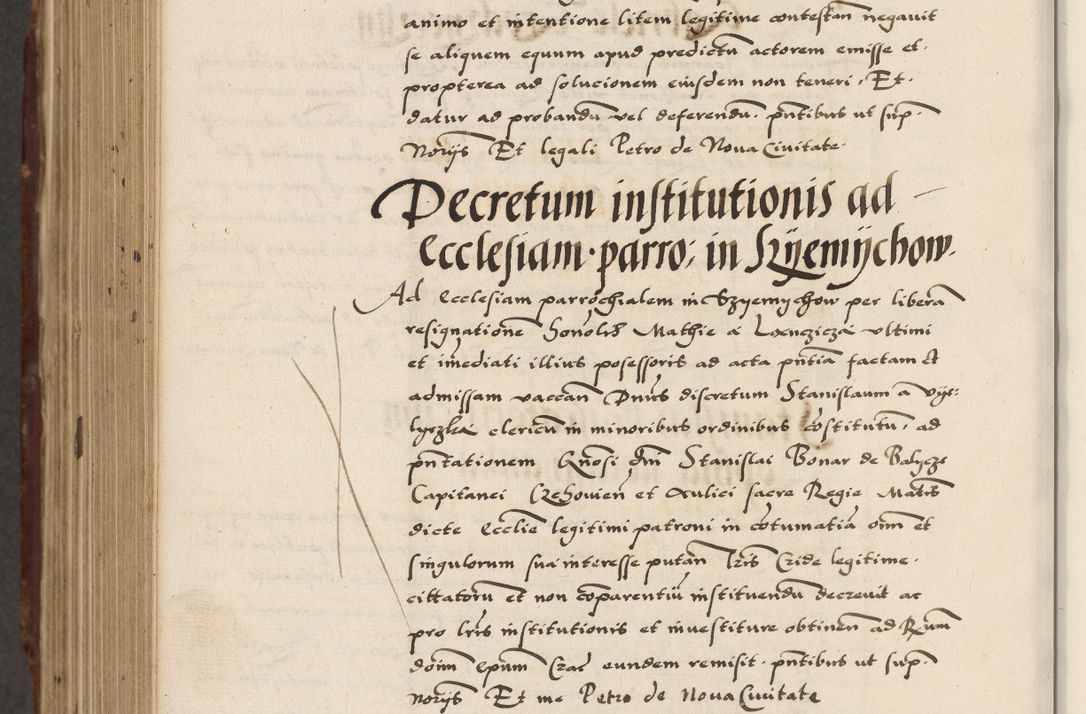 animo et intentione litem legitime contestan negauit
se aliquem equum apud predictũ actorem emisse et
propterea ad solucionem eiusdem non teneri. Et
datur ad probandũ vel deferendũ. pntibus ut sup.
Norijs Et legali Petro de Noua Ciuitate.
Decretum institutionis ad
Ecclesiam parro: in Szyemychow.
Ad Ecclesiam parrochialem in Szyemychow per liberã
resignationẽ honolis Mathie a Loenczicza vltimi
et imediati illius posessoris ad acta pntia factam et
admissam vaccan Dnus discretum Stanislaum a Vys:
lyczka clericũ in minoribus ordinibus cõstitutũ, ad
pntationem Gnosi dni Stanislai Bonar de Balycze
Capitanei Czchouien et Aulici sacre Regie Matis
dicte Ecclie legitimi patroni in cõtumatiã oim et
singulorum sua interesse putan lris Cride legitime.
cittatorũ et non cõparentiũ instituendũ decreuit ac
pro lris institutionis et inuestiture obtinen ad Rum
doim Epum Crac eundem remisit. pntibus ut sup.
norijs Et me Petro de Noua Ciuitate